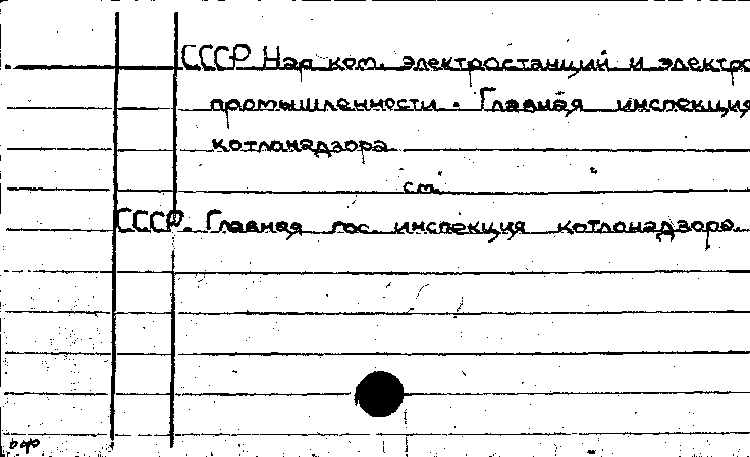 СССР Нар. ком. электростанций и электро
промышленности. Главная инспекция
котлонадзора
см.
СССР. Главная гос. инспекция котлонадзора.